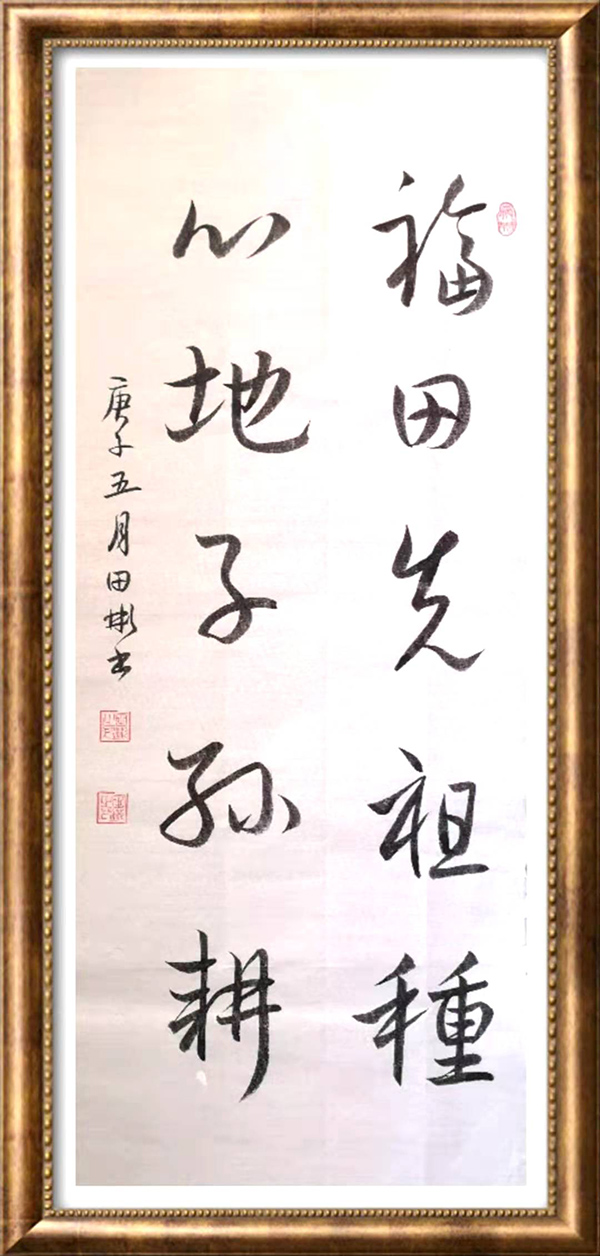 福田先祖種
心地子孫耕
庚子五月田彬书